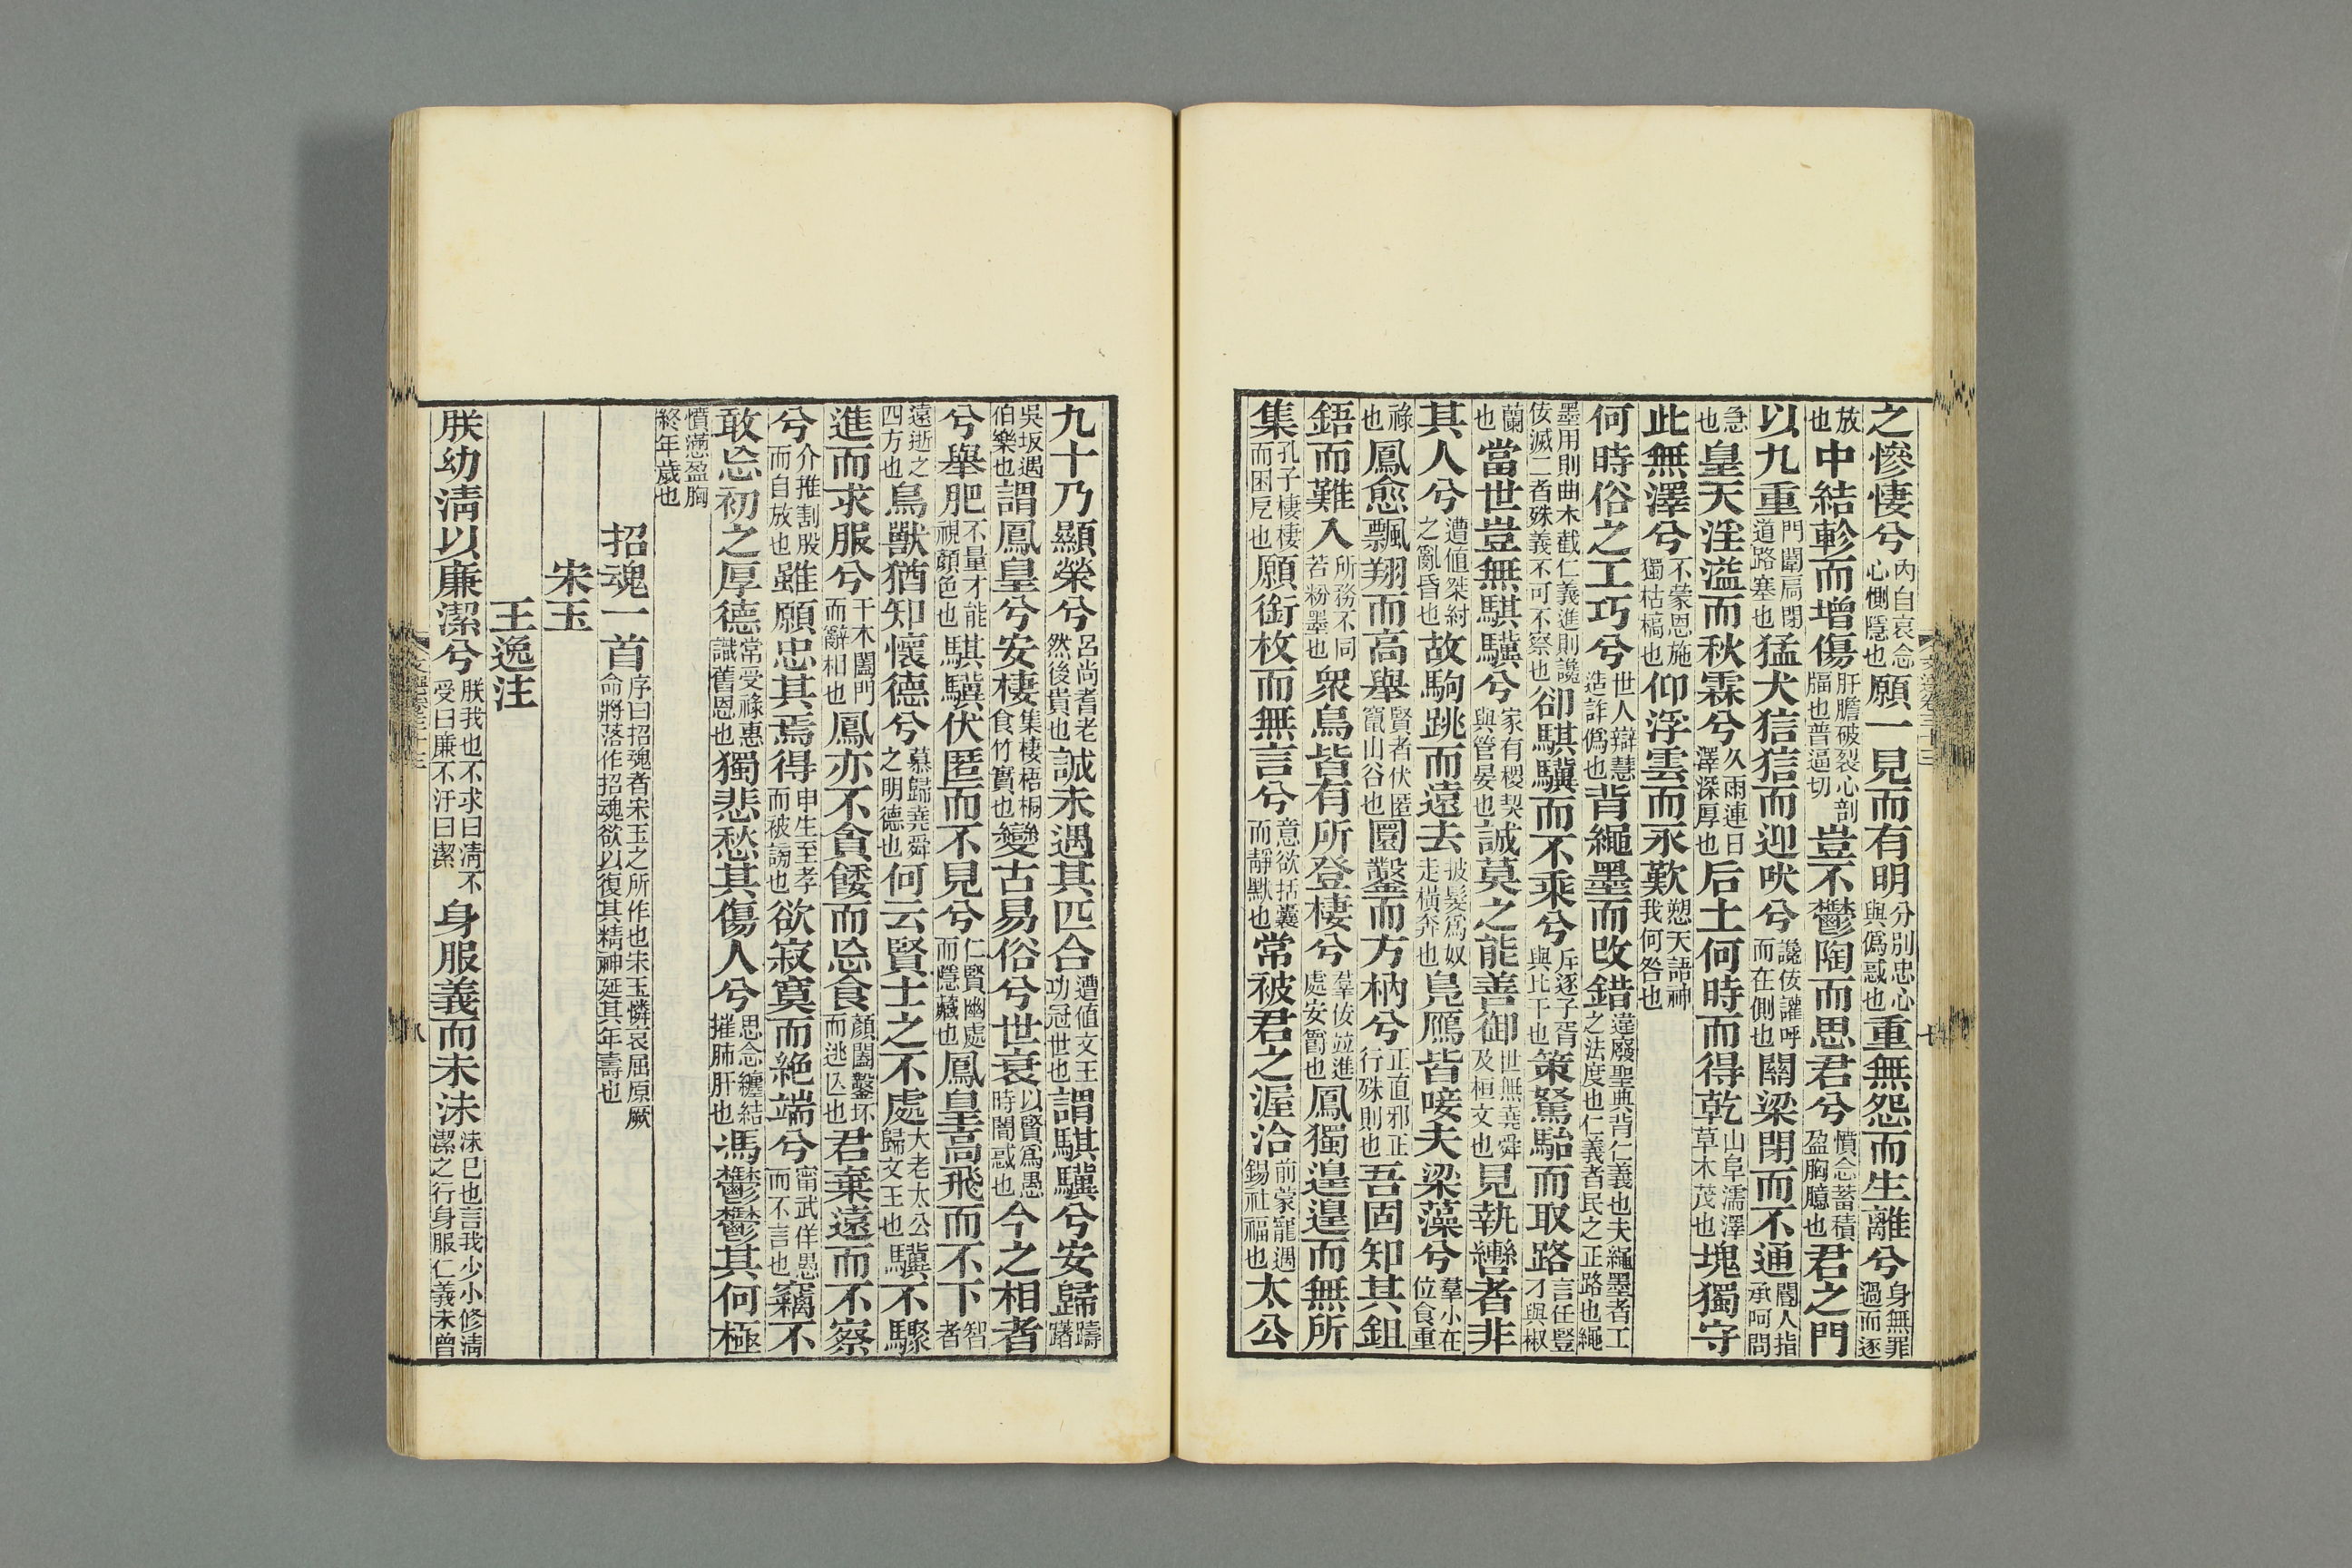 之慘悽兮內自哀念心惻隱也願一見而有明分別忠心與僞惑也重無怨而生離兮身無罪過而逐
放也中結軫而增傷肝膽破裂心剖𤗚也普逼切豈不鬱陶而思君兮憤念蓄積盈胸臆也君之門
以九重門闈扃閉道路塞也猛犬狺狺而迎吠兮讒佞讙呼而在側也關梁閉而不通閽人指承呵問
急也皇天淫溢而秋霖兮久雨連日澤深厚也后土何時而得乾山阜濡澤草木茂也塊獨守
此無澤兮不蒙恩施獨枯槁也仰浮雲而永歎愬天語神我何咎也
何時俗之工巧兮世人辯慧造詐僞也背繩墨而改錯違廢聖典背仁義也夫繩墨者工之法度也仁義者民之正路也繩
墨用則曲木截仁義進則讒佞滅二者殊義不可不察也卻騏驥而不乘兮斥逐子胥與比干也策駑駘而取路言任豎刁與椒
蘭也當世豈無騏驥兮家有稷契與管晏也誠莫之能善御世無堯舜及桓文也見執轡者非
其人兮遭值桀紂之亂昏也故駒跳而遠去被髮爲奴走橫奔也鳧鴈皆唼夫梁藻兮羣小在位食重
祿也鳳愈飄翔而高舉賢者伏匿竄山谷也圜鑿而方枘兮正直邪正行殊則也吾固知其鉏
鋙而難入所務不同若粉墨也衆鳥皆有所登棲兮羣佞竝進處安窩也鳳獨遑遑而無所
集孔子棲棲而困戹也願銜枚而無言兮意欲括囊而靜默也常被君之渥洽前蒙寵遇錫祉福也太公
九十乃顯榮兮呂尚耆老然後貴也誠未遇其匹合遭值文王功冠世也謂騏驥兮安歸躊躇
吳坂遇伯樂也謂鳳皇兮安棲集棲梧桐食竹實也變古易俗兮世衰以賢爲愚時闇惑也今之相者
兮舉肥不量才能視顏色也騏驥伏匿而不見兮仁賢幽處而隱藏也鳳皇高飛而不下智者
遠逝之四方也鳥獸猶知懷德兮慕歸堯舜之明德也何云賢士之不處大老太公歸文王也驥不驟
進而求服兮干木闔門而辭相也鳳亦不貪餧而忘食顏闔鑿坏而逃亾也君棄遠而不察
兮介推割股而自放也雖願忠其焉得申生至孝而被謗也欲寂寞而絶端兮甯武佯愚而不言也竊不
敢忘初之厚德常受祿惠識舊恩也獨悲愁其傷人兮思念纏結摧肺肝也馮鬱鬱其何極
憤懣盈胸終年歲也
招魂一首序曰招魂者宋玉之所作也宋玉憐哀屈原厥命將落作招魂欲以復其精神延其年壽也
宋玉
王逸注
朕幼清以廉潔兮朕我也不求曰清不受曰廉不汙曰潔身服義而未沬沬已也言我少小修清潔之行身服仁義未曾